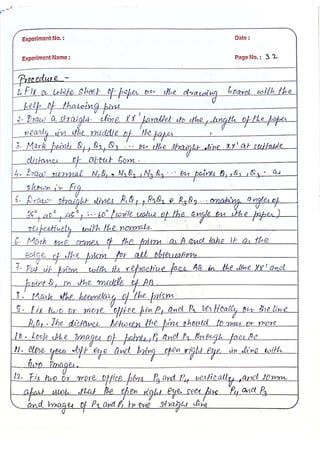 Experiment No. : Date :
Experiment Name : Page No. : 32
Procedure -
1. Fix a white sheet of paper on the drawing board with the
help of thawing pins
2. Draw a straight line XX' parallel to the length of the paper
nearly in the middle of the paper
3. Mark points Q1, Q2, Q3 ... on the straight line XX' at suitable
distance of about 5cm.
4. Draw normal N1Q1, N2Q2, N3Q3 ... on points Q1, Q2, Q3 - as
shown in Fig
5. Draw straight lines R1Q1, R2Q2 & R3Q3 ... making angles of
35°, 40°, 45°, ... 60° (write value of the angle on the paper)
respectively with the normals.
6. Mark one corner of the prism as A and take it as the
edge of the prism for all observation.
7. Put it prism with its refractive face AB in the line XX' and
point Q1 in the middle of AB
8. Mark the boundary of the prism
9. Fix two or more office pin P1 and P2 vertically on the line
R1Q1. The distance between the pins should 10 mm or more
10. Look the images of points P1 and P2 through face AC
11. Close your left eye and bring open right eye in line with
two images.
12. Fix two or more office pins P3 and P4 vertically, and 10mm
apart such that the open right eye sees pins P4 and P3
and images of P2 and P1 in one straight line